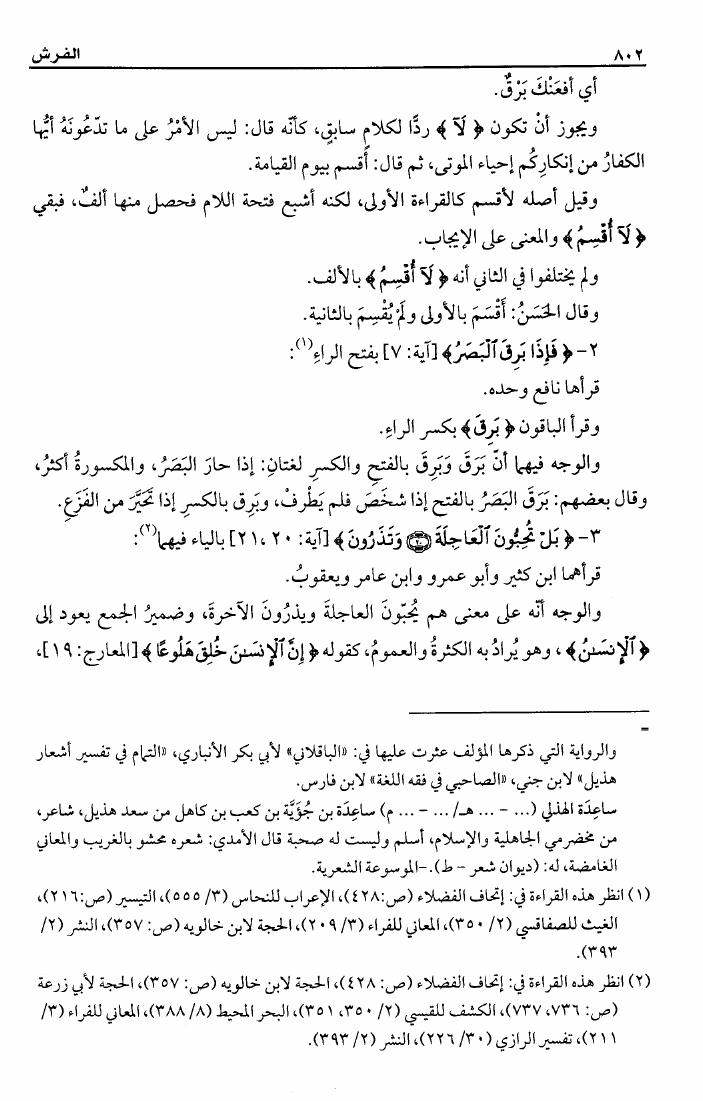 ٨٠٢ الفرش
أي أفعَنْكَ بَرْقٌ.
ويجوز أنْ تكون ﴿ لَآ ﴾ ردًّا لكلامٍ سابقٍ، كأنّه قال: ليس الأمْرُ على ما تدّعُونَهُ أيُّها
الكفارُ من إنكارِكُم إحياء الموتى، ثم قال: أُقسم بيوم القيامة.
وقيل أصله لأقسم كالقراءة الأولى، لكنه أشبع فتحة اللام فحصل منها ألفٌ، فبقي
﴿ لَآ أُقْسِمُ ﴾ والمعنى على الإيجاب.
ولم يختلفوا في الثاني أنه ﴿ لَآ أُقْسِمُ ﴾ بالألف.
وقال الحَسَنُ: أَقْسَمَ بالأولى ولَمْ يُقْسِمَ بالثانية.
٢- ﴿ فَإِذَا بَرِقَ ٱلْبَصَرُ ﴾ [آية: ٧] بفتح الراءِ(١):
قرأها نافع وحده.
وقرأ الباقون ﴿ بَرِقَ ﴾ بكسر الراءِ.
والوجه فيهما أنّ بَرَقَ وَبَرِقَ بالفتحِ والكسرِ لغتانِ: إذا حارَ البَصَرُ، والمكسورةُ أكثرُ،
وقال بعضهم: بَرَقَ البَصَرُ بالفتح إذا شخَصَ فلم يَطْرِفْ، وبَرِق بالكسرِ إذا تحَيَّرَ من الفَزَعِ.
٣- ﴿ بَلْ تُحِبُّونَ ٱلْعَاجِلَةَ ۝٢٠ وَتَذَرُونَ ﴾ [آية: ٢٠، ٢١] بالياء فيهما(٢):
قرأهما ابن كثير وأبو عمرو وابن عامر ويعقوبُ.
والوجه أنّه على معنى هم يُحبّونَ العاجلةَ ويذرُونَ الآخرةَ، وضميرُ الجمع يعود إلى
﴿ ٱلْإِنسَـٰنُ ﴾، وهو يُرادُ به الكثرةُ والعمومُ، كقوله ﴿ إِنَّ ٱلْإِنسَـٰنَ خُلِقَ هَلُوعًا ﴾ [المعارج: ١٩]،
=
والرواية التي ذكرها المؤلف عثرت عليها في: «الباقلاني» لأبي بكر الأنباري، «التمام في تفسير أشعار
هذيل» لابن جني، «الصاحبي في فقه اللغة» لابن فارس.
ساعِدَة الهذلي (... - ... هـ/ ... - ... م) ساعِدَة بن جُؤَيَّة بن كعب بن كاهل من سعد هذيل، شاعر،
من مخضرمي الجاهلية والإسلام، أسلم وليست له صحبة قال الأمدي: شعره محشو بالغريب والمعاني
الغامضة، له: (ديوان شعر – ط).-الموسوعة الشعرية.
(١) انظر هذه القراءة في: إتحاف الفضلاء (ص:٤٢٨)، الإعراب للنحاس (٣/ ٥٥٥)، التيسير (ص:٢١٦)،
الغيث للصفاقسي (٢/ ٣٥٠)، المعاني للفراء (٣/ ٢٠٩)، الحجة لابن خالويه (ص: ٣٥٧)، النشر (٢/
٣٩٣).
(٢) انظر هذه القراءة في: إتحاف الفضلاء (ص: ٤٢٨)، الحجة لابن خالويه (ص: ٣٥٧)، الحجة لأبي زرعة
(ص: ٧٣٦، ٧٣٧)، الكشف للقيسي (٢/ ٣٥٠، ٣٥١)، البحر المحيط (٨/ ٣٨٨)، المعاني للفراء (٣/
٢١١)، تفسير الرازي (٣٠/ ٢٢٦)، النشر (٢/ ٣٩٣).